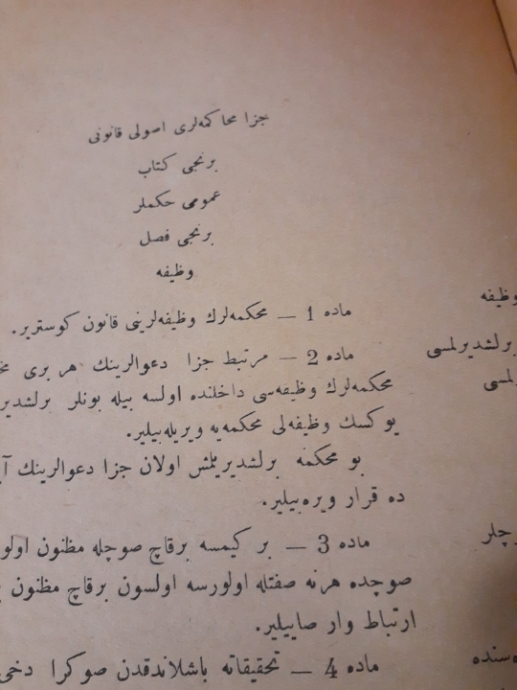 جزا محاكمه‌لری اصولی قانونی
برنجی كتاب
عمومی حكملر
برنجی فصل
وظیفه
وظیفه
ماده 1 — محكمه‌لرك وظیفه‌لرینی قانون كوستریر.
برلشدیرلمسی
ماده 2 — مرتبط جزا دعوالرینك هر بری
محكمه‌لرك وظیفه‌سی داخلنده اولسه بیله بونلر برلشدیر
یوكسك وظیفه‌لی محكمه‌یه ویریله‌بیلیر.
بو محكمه برلشدیریلمش اولان جزا دعوالرینك
ده قرار ویره‌بیلیر.
ماده 3 — بر كیمسه برقاچ صوچله مظنون اولو
صوچده هرنه صفتله اولورسه اولسون برقاچ مظنون
ارتباط وار صاییلیر.
ماده 4 — تحقیقاته باشلاندقدن صوكرا دخی